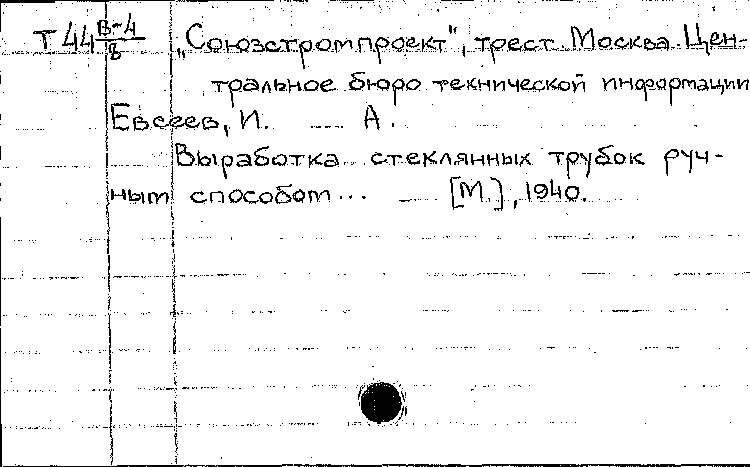 Т 44 В-4/8 „Союзстромпроект", трест. Москва. Цен-
тральное бюро технической информации
Евсеев, И. — А.
Выработка стеклянных трубок руч-
ным способом... — [М.], 1940.